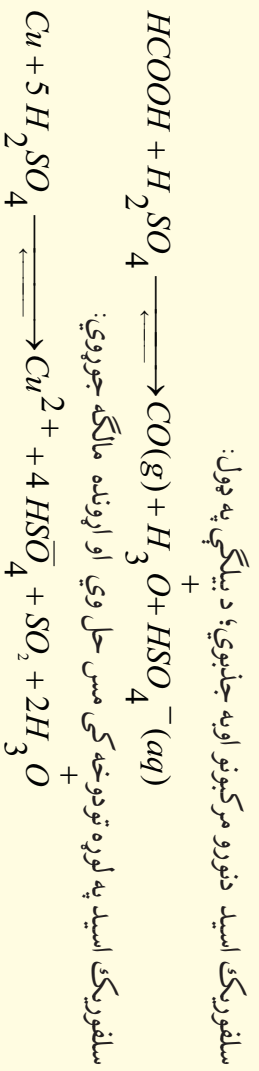 سلفوریک اسید دنورو مرکبونو اوبه جذبوي؛ د بیلگې په ډول:
HCOOH + H₂SO₄ ⇄ CO(g) + H₃O⁺ + HSO₄⁻ (aq)
سلفوریک اسید په لوړه تودوخه کې مس حل وي او اړونده مالگه جوړوي:
Cu + 5H₂SO₄ ⇄ Cu²⁺ + 4HSO₄⁻ + SO₂ + 2H₃O⁺